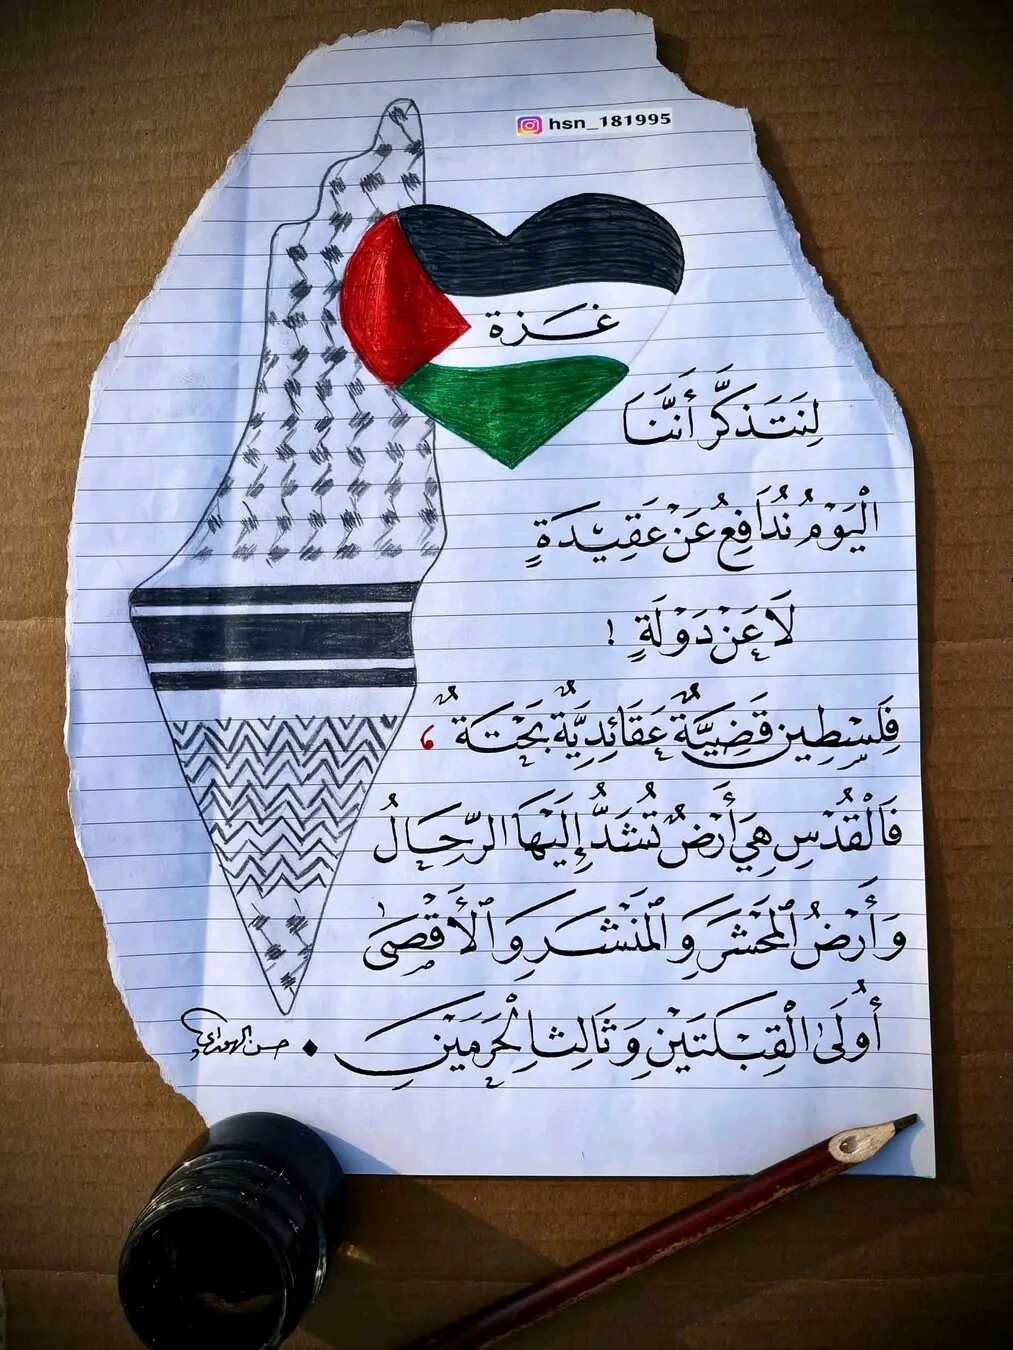 hsn_181995
غزة
لِنَتَذَكَّر أَنَّنَا
الْيَوْمُ نُدَافِعُ عَنْ عَقِيْدَةٍ
لَا عَنْ دَوْلَةٍ !
فِلَسْطِين قَضِيَّةٌ عَقَائِدِيَّةٌ بَحْتَةٌ ،
فَالْقُدْسِ هِيَ أَرْضٌ تُشَدُّ إِلَيْهَا الرِّحَالُ
وَأَرْضُ ٱلْمَحْشَرِ وَ ٱلْمَنْشَرِ وَ ٱلْأَقْصَىٰ
أُولَىٰ الْقِبْلَتَيْنِ وَثَالِثُ الْحَرَمَيْنِ